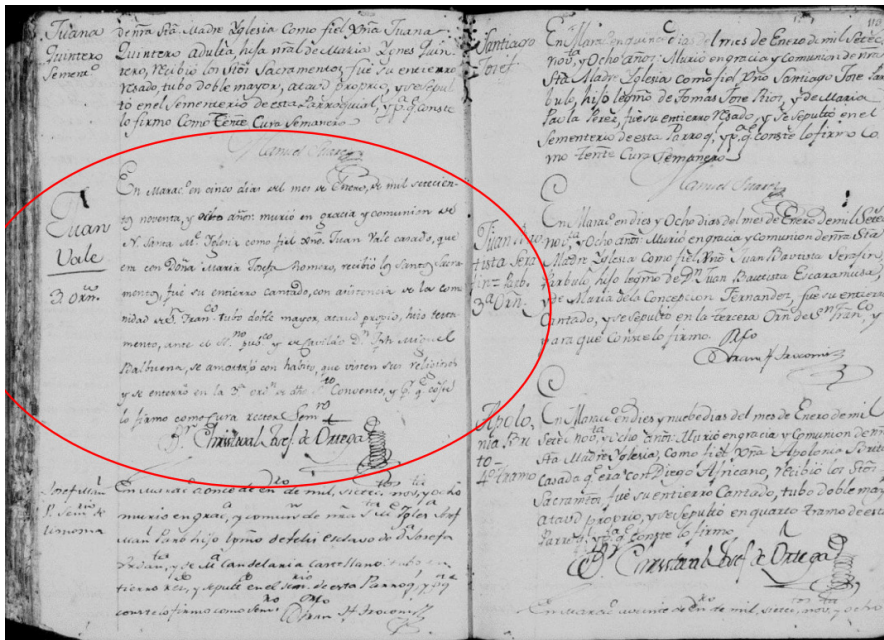 Juana
Quintero
Sement.o
de ñra Sta. Madre Yglesia como fiel xpna Juana
Quintero adulta hija nral de Maria Ygnes Quin-
tero, recibio los Stos Sacramentos, fue su entierro
resado, tubo doble mayor, ataud proprio, y se sepul
tó en el Sementerio de esta Parroquial, y p.a q.e conste
lo firmo como Tente. Cura Semanero
Manuel Suarez
Juan
Vale
3. Orñ.
En Marac.o en cinco dias del mes de Enero, de mil setecien-
tos noventa, y ocho años: murio en gracia y comunion de
N. Santa M.e Yglesia como fiel xno. Juan Vale casado, que
era con Doña Maria Josefa Romero, recibió los Santos Sacra-
mentos, fué su entierro cantado, con asistencia de la comu-
nidad de S.n Fran.co tubo doble mayor, ataud propio, hizo testa-
mento, ante el no pub.co y de Cavildo D.n Jph Miguel
Balbuena, se amortajó con habito, que visten sus religiosos
y se enterró en la 3.a orn de dho Convento, y p.a q.e conste
lo firmo como Cura rector Sem.ro
Br. Christoval Josef. de Ortega
Josef Man.
En Marac.o a once de en.ro de mil, siete.tos nov.ta y ocho
murio en grac.a y comun.n de ñra S.ta M.e Ygles.a Josef
Man.l Parro hijo lexmo de Felix esclavo de D.a Josefa
y de M.a Candelaria Castellano, tubo en
tierro res.do y sepult.a en el sem.rio de esta Parroq.l y p.a q.e
conste lo firmo como Sem.ro
Fran.co H. Iroconis
Santiago
Josef.
En Marac.o en quince dias del mes de Enero de mil Setec.
nov.ta y Ocho años: Murio en gracia y comunion de ñra
Sta. Madre Yglesia como fiel xpno Santiago Jose Par-
bulo, hijo legmo. de Tomas Jose Rios, y de Maria
Paola Perez, fue su entierro resado, y se sepultó en el
Sementerio de esta Parroq.l y p.a q.e conste lo firmo Co-
mo tente. Cura Semanero
Manuel Suarez
Juan Bau-
tista Sera
fin Parb.
3.a Orn.
En Marac.o en dies y Ocho dias del mes de Enero de mil Setec.
nov.ta y Ocho años: Murio en gracia y comunion de ñra Sta
Madre Yglesia como fiel xpno Juan Bavtista Serafin
Parbulo, hijo legmo. de D.n Juan Bautista Escaramusa,
y de Maria dela Concepcion Fernandez, fue su entierro
Cantado, y se sepultó en la tercera Orn de S.n Fran.co, y
para que conste lo firmo.
Fran.co H. Iroconis
Apolo-
nia Bri
to-
4.o tramo
En Marac.o en dies y nuebe dias del mes de Enero de mil
Setec.s nov.ta y ocho años: Murio en gracia y Comunion de ñra
Sta Madre Yglesia, como fiel xpna Apolonia Brito
Casada q.e era con Diego Africano, recibio los Stos.
Sacramtos fue su entierro Cantado, tubo doble mayor
Ataud proprio, y se sepultó en quarto tramo de esta
Parroq.l y p.a q.e conste lo firmo
Br. Christoval Josef. de Ortega
En Marac.o en veinte de En.ro de mil, siete.tos nov.ta y ocho